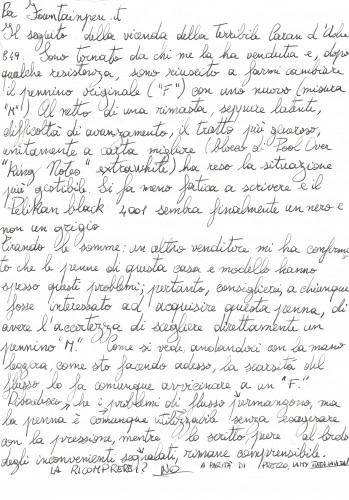 Da Fountainpen.it
Il seguito della vicenda della terribile Caran d'Ache
849. Sono tornato da chi me la ha venduta e, dopo
qualche resistenza, sono riuscito a farmi cambiare
il pennino originale ("F") con uno nuovo (misura
"M"). Al netto di una rimasta, seppure latente,
difficoltà di avanzamento, il tratto più generoso,
unitamente a carta migliore (blocco di Fool Over
"King Notes" extrawhite) ha reso la situazione
più gestibile. Si fa meno fatica a scrivere e il
Pelikan black 4001 sembra finalmente un nero e
non un grigio.
Tirando le somme: un altro venditore mi ha conferma
to che le penne di questa casa e modello hanno
spesso questi problemi; pertanto, consiglierei a chiunque
fosse interessato ad acquisire questa penna, di
avere l'accortezza di scegliere direttamente un
pennino "M". Come si vede, andandoci con la mano
leggera, come sto facendo adesso, la scarsità del
flusso lo fa comunque avvicinare a un "F."
Ribadisco, che i problemi di flusso permangono, ma
la penna è comunque utilizzabile senza esagerare
con la pressione, mentre lo scritto, pere al bordo
degli inconvenienti segnalati, rimane comprensibile.
LA RICOMPREREI? NO A PARITÀ DI PREZZO, LAMY